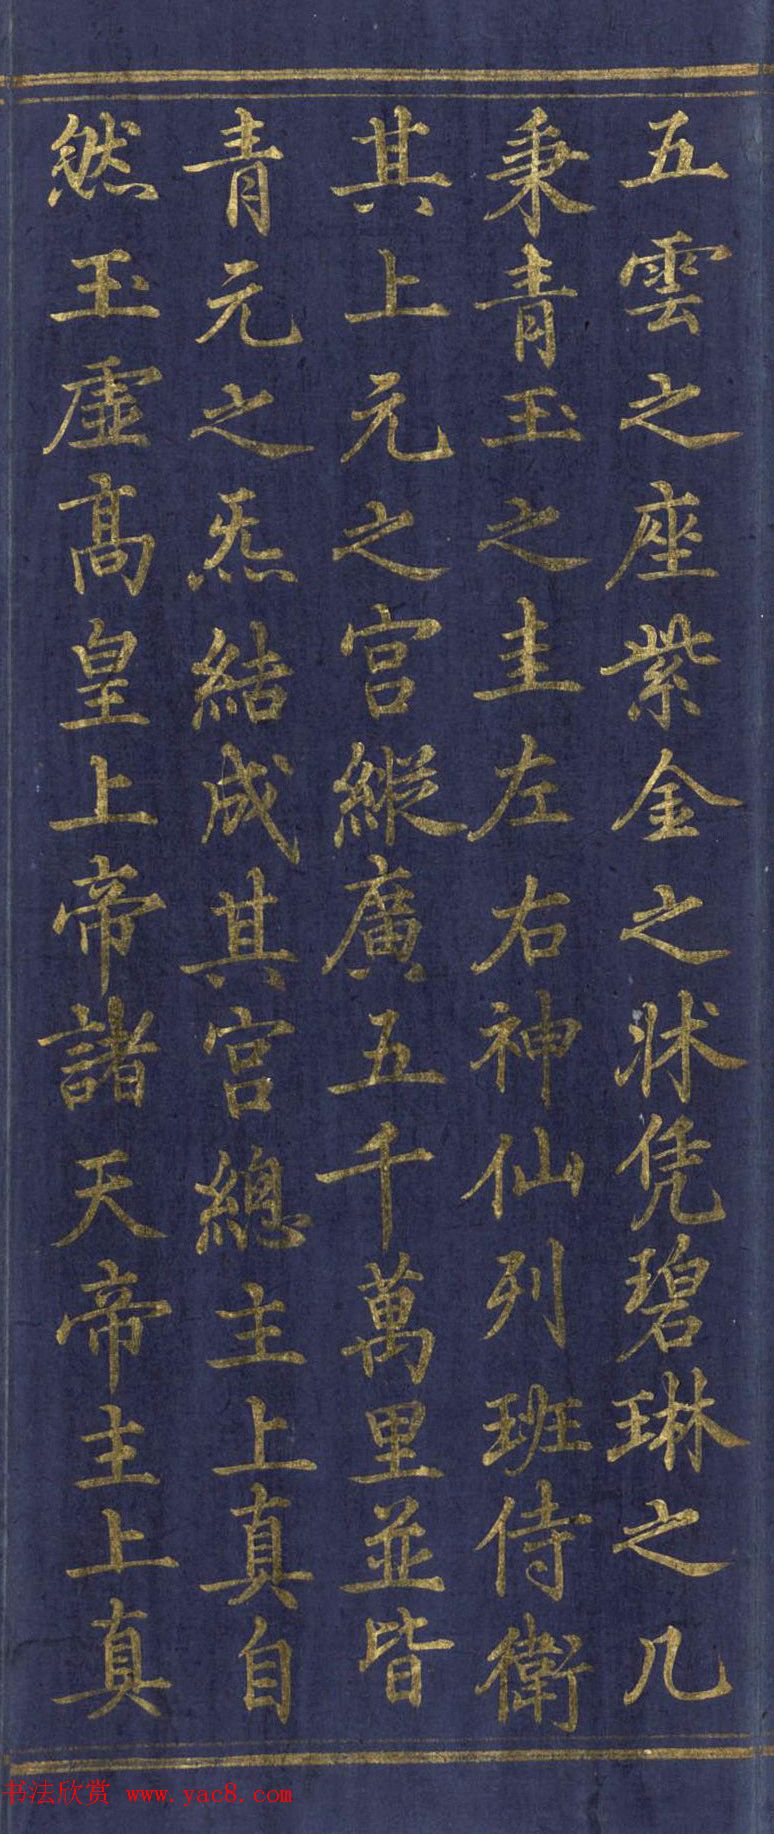 五雲之座紫金之牀凭碧琳之几
秉青玉之圭左右神仙列班侍衛
其上元之宮縱廣五千萬里並皆
青元之炁結成其宮總主上真自
然玉虛高皇上帝諸天帝主上真
书法欣赏 www.yac8.com